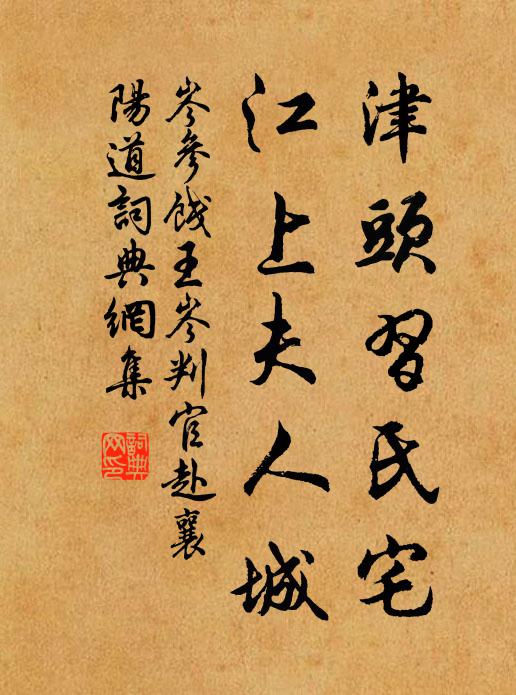 津頭習氏宅
江上夫人城
岑參餞王岑判官赴襄
陽道詞典網集
詞典
网印